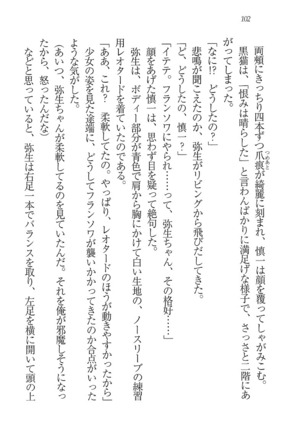 102
両頬にきっちり四本ずつ爪痕が綺麗に刻まれ、慎一は顔を覆ってしゃがみこむ。
黒猫は、「恨みは晴らした」と言わんばかりに満足げな様子で、さっさと二階にあ
がってしまった。
「なに!? どうしたの？」
悲鳴が聞こえたのか、弥生がリビングから飛びだしてきた。
「ど、どうしたの、慎一？」
「イテテ。フランソワにやられ……って、弥生ちゃん、その格好……」
顔をあげた慎一は、思わず目を疑って絶句した。
弥生は、ボディー部分が青色で肩から胸にかけて白い生地の、ノースリーブの練習
用レオタードを着ていたのである。
「ああ、これ？ 柔軟してたの。やっぱり、レオタードのほうが動きやすかったから」
少女の姿を見た途端に、どうしてフランソワが襲いかかってきたのか合点がいった
ような気がした。
（あいつ、弥生ちゃんが柔軟してるのを見ていたんだ。それを俺が邪魔しそうになっ
たから、怒ったんだな）
などと思っていると、弥生は右足一本でバランスを取り、左足を横に開いて頭の上